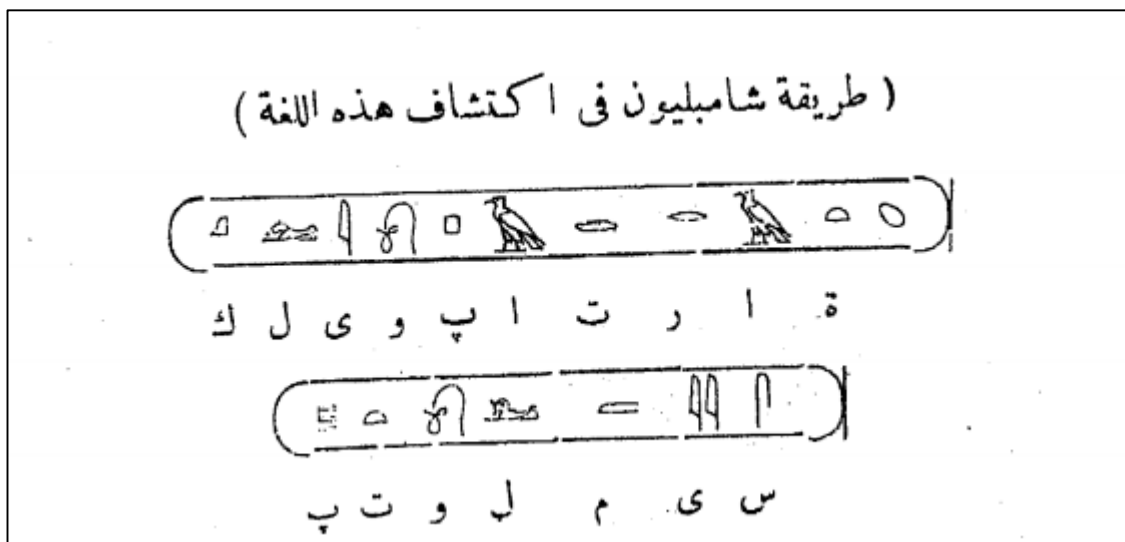 ( طريقة شامبليون فى اكتشاف هذه اللغة )
ة ا ر ت ا پ و ى ل ك
س ى م ل و ت پ